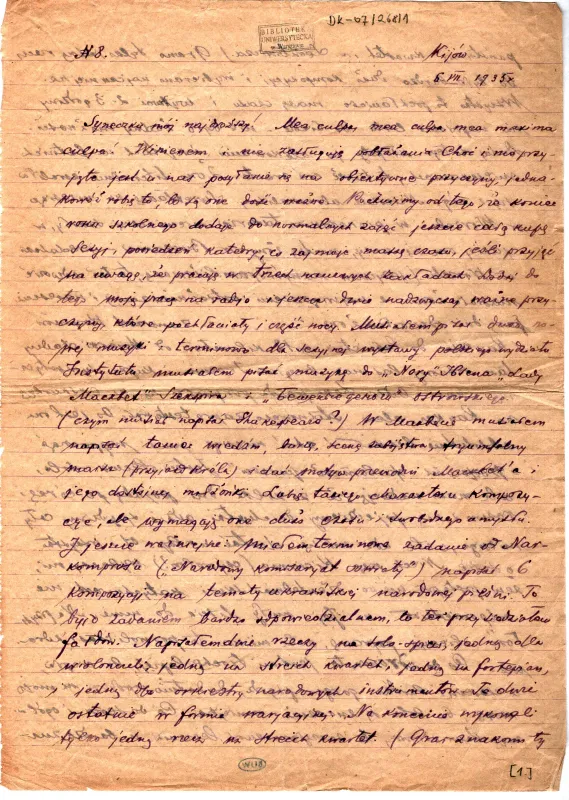 DK-07/268/1
BIBLIOTEKA
UNIWERSYTECKA
N 8.
Kijów
6 VII. 1935 r
Syneczku mój najdroższy! Mea culpa, mea culpa, mea maxima
culpa! Winienem i nie zasługuję pobłażania. Choć i nie przy-
jęte jest u nas powoływanie się na objektywne przyczyny, jedna-
kowoż robię to, bo są one dość ważne. Rachujmy od tego, że koniec
roku szkolnego dodaje do normalnych zajęć jeszcze całą kupę
sesji, posiedzeń katedry, co zajmuje masę czasu, jeśli przyjąć
na uwagę, że pracuję w trzech naukowych zakładach. Dodaj do
tego moją pracę na radjo i jeszcze dwie nadzwyczaj ważne przy-
czyny, które pochłaniały i część nocy. Musiałem pisać dużo
nej muzyki terminowo dla sesyjnej wystawy polskiego wydziału
Instytutu musiałem pisać muzykę do "Nory" Ibsena, "Lady
Macbet" Szekspira i Ostrowskiego.
(czym musiał napisać Shakespeare?) W Macbecie musiałem
napisać taniec wiedźm, burzę, scenę zabójstwa, tryumfalny
marsz (przyjazd Króla) i dać motyw przewodni Macbet'a i
jego dostojnej małżonki. Lubię takiego charakteru kompozy-
cje, ale wymagają one dużo czasu i swobodnego umysłu.
I jeszcze ważniejsze: Miałem terminowe zadanie od Nar-
komprosu ("Narodny komisarjat oswity") napisać 6
kompozycji na tematy ukraińskiej narodowej pieśni. To
było zadaniem bardzo odpowiedzialnem, to też przysiadziałem
fałdów. Napisałem dwie rzeczy na solo-śpiew, jedną dla
wiolonczeli, jedną na streich kwartet, jedną na fortepian,
jedną dla orkiestry narodowych instrumentów. Te dwie
ostatnie w formie warjacyjnej. Na koncercie wykonali
tylko jedną rzecz na streich kwartet. (Grał znakomity
WU18
[1.]